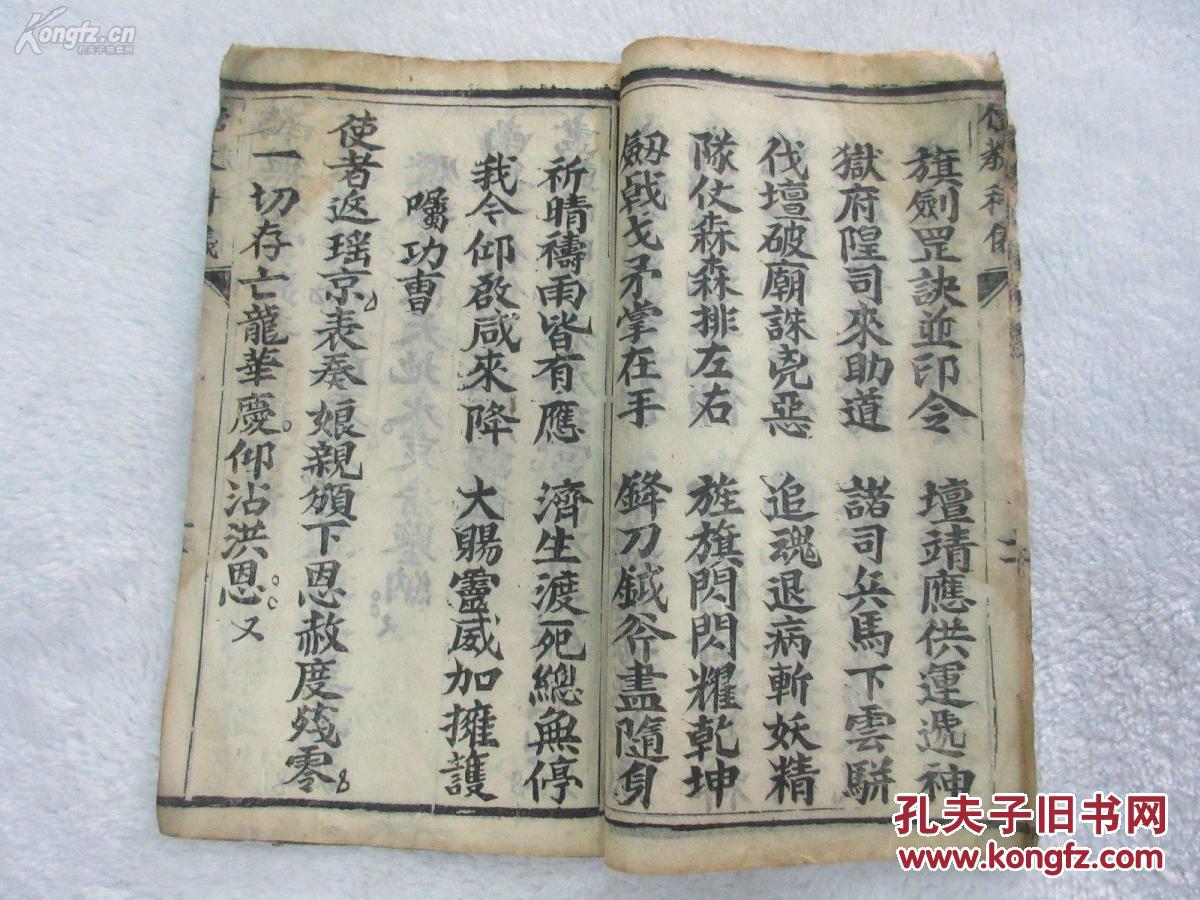 旗劍罡訣並印令　壇靖應供運遞神
獄府隍司來助道　諸司兵馬下雲駢
伐壇破廟誅兇惡　追魂退病斬妖精
隊仗森森排左右　旌旗閃閃耀乾坤
劔戟戈矛掌在手　鋒刀鉞斧盡隨身
祈晴禱雨皆有應　濟生渡死總無停
我今仰啟咸來降　大賜靈威加擁護
囑功曹
使者返瑤京表奏娘親頒下恩赦度殘零
一切存亡龍華慶仰沾洪恩又
二
Kongfz.cn
孔夫子拍卖网
孔夫子旧书网
www.kongfz.com